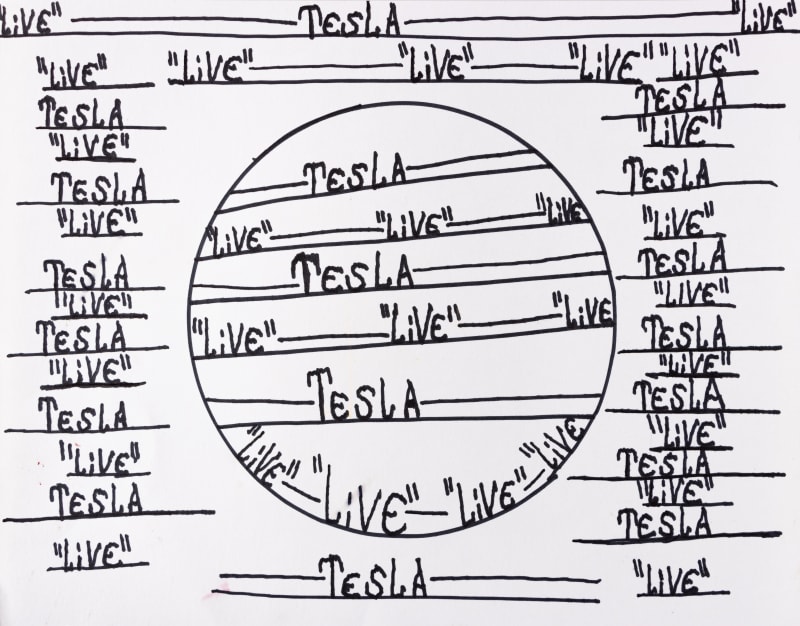 "LiVE" TESLA "LiVE"
"LiVE" "LiVE" "LiVE"
"LiVE"
TESLA
"LiVE"
TESLA
"LiVE"
TESLA
"LiVE"
TESLA
"LiVE"
TESLA
"LiVE"
TESLA
"LiVE"
TESLA
"LiVE" "LiVE" "LiVE
TESLA
"LiVE" "LiVE" "LiVE
TESLA
"LiVE" "LiVE" "LiVE" "LiVE
TESLA
"LiVE"
TESLA
"LiVE"
TESLA
"LiVE"
TESLA
"LiVE"
TESLA
"LiVE"
TESLA
"LiVE"
TESLA
"LiVE"
TESLA
"LiVE"